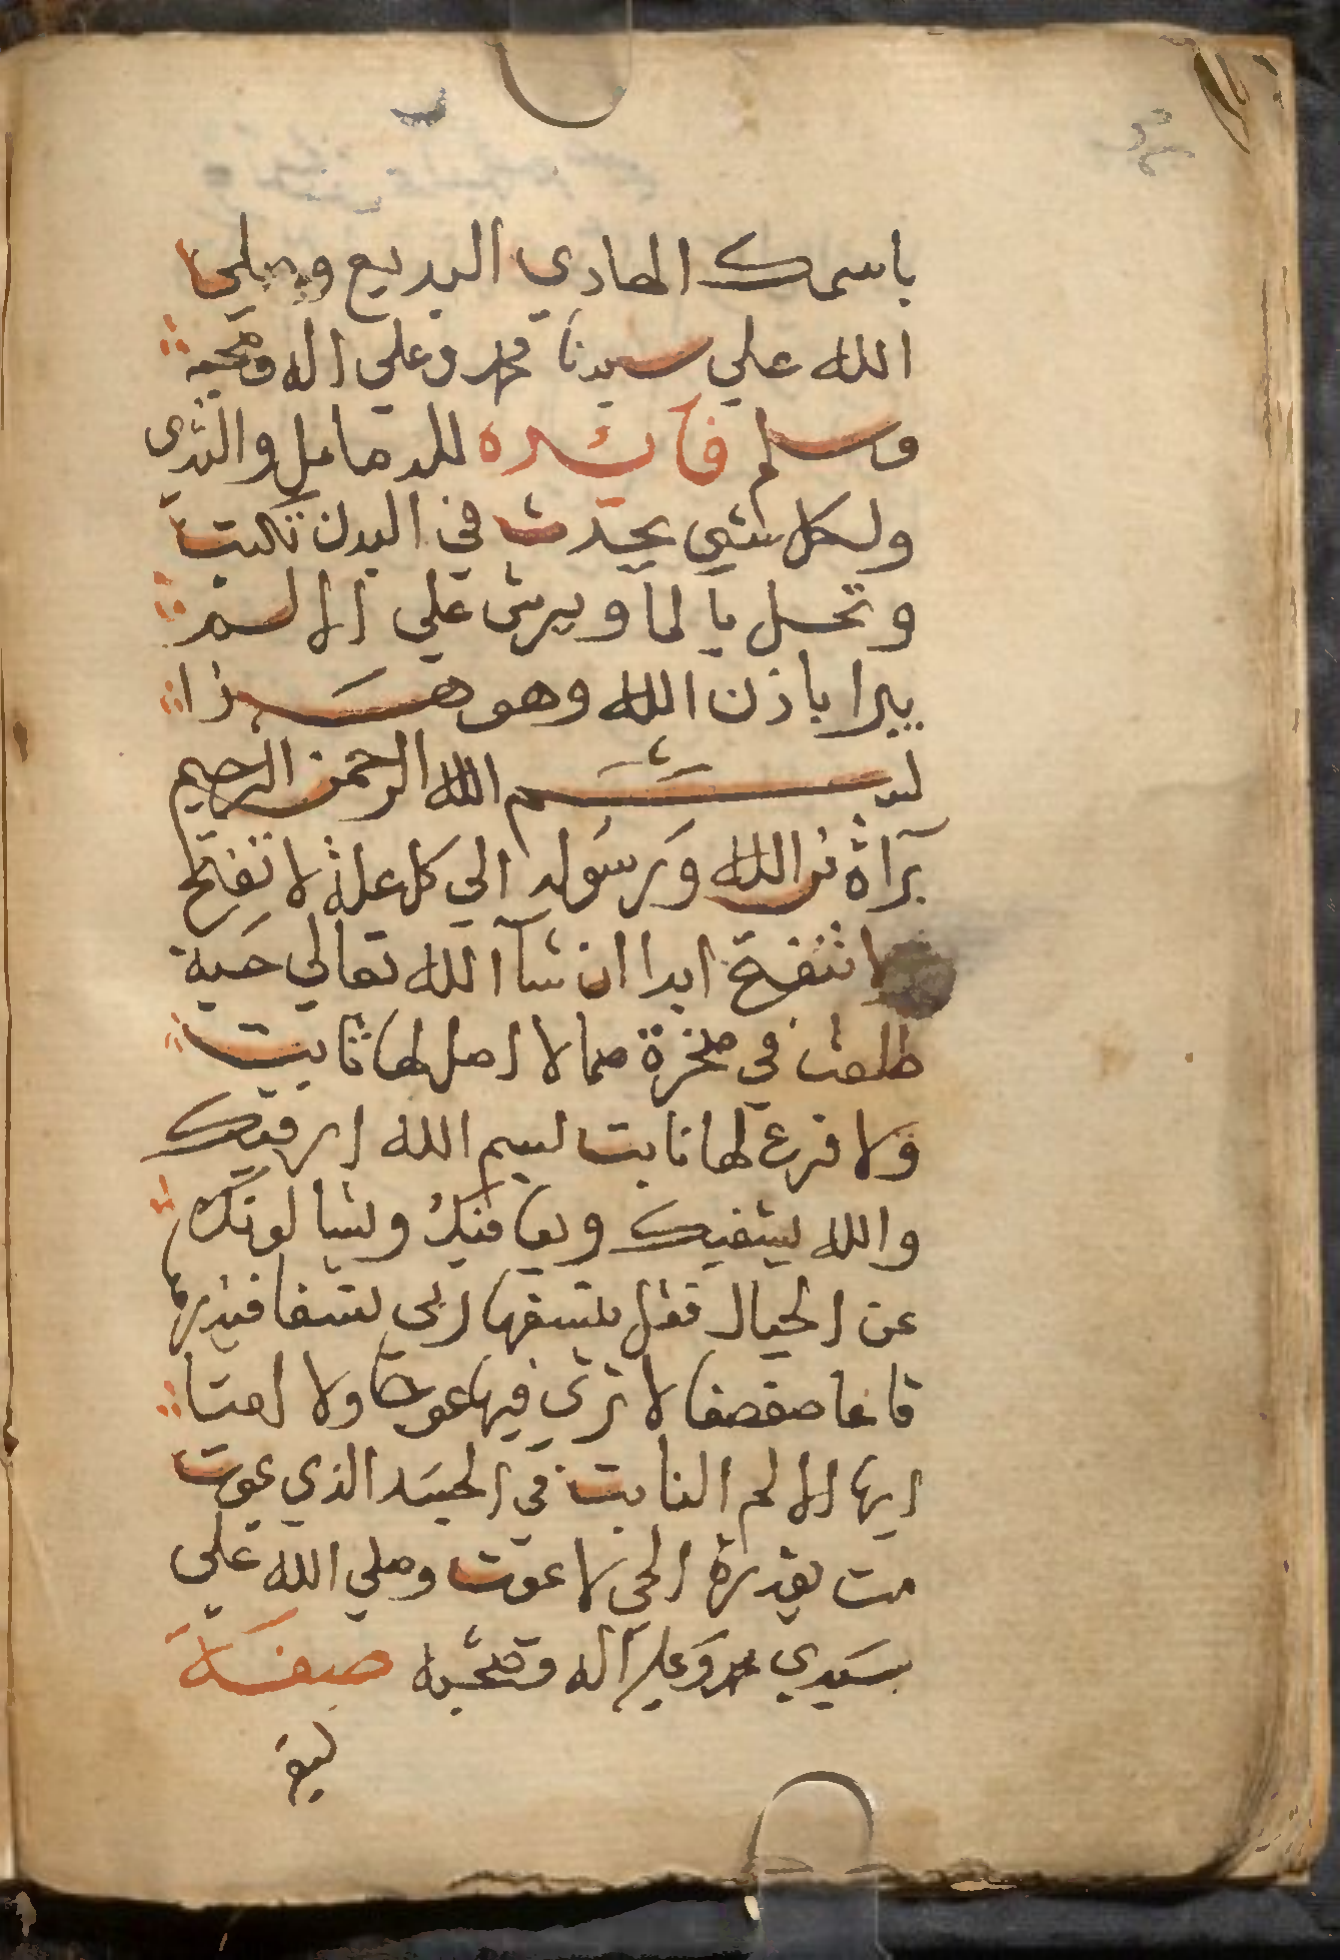 باسمك الهادي البديع وصلي
الله علي سيدنا محمد وعلي اله وصحبه
وسلم فائده للدمامل والثدي
ولكل شي يحدث في البدن تكتب
وتحل بالما ويرش علي الالم
يبرا باذن الله وهو هذا
بسم الله الرحمن الرحيم
برآة من الله ورسوله الي كل علة لا تفتح
لا تنفتح ابدا ان شآ الله تعالي حبة
طلعت في صخرة صما لا اصل لها ثابت
ولا فرع لها نابت بسم الله ارقيك
والله يشفيك ويعافيك ويسالونك
عن الجبال فقل ينسفها ربي نسفا فيذرها
قاعا صفصفا لا تري فيها عوجا ولا امتا
ايها الالم النابت في الجسد الذي يموت
مت بقدرة الحي لا يموت وصلي الله علي
سيدي محمد وعلي اله وصحبه صفة